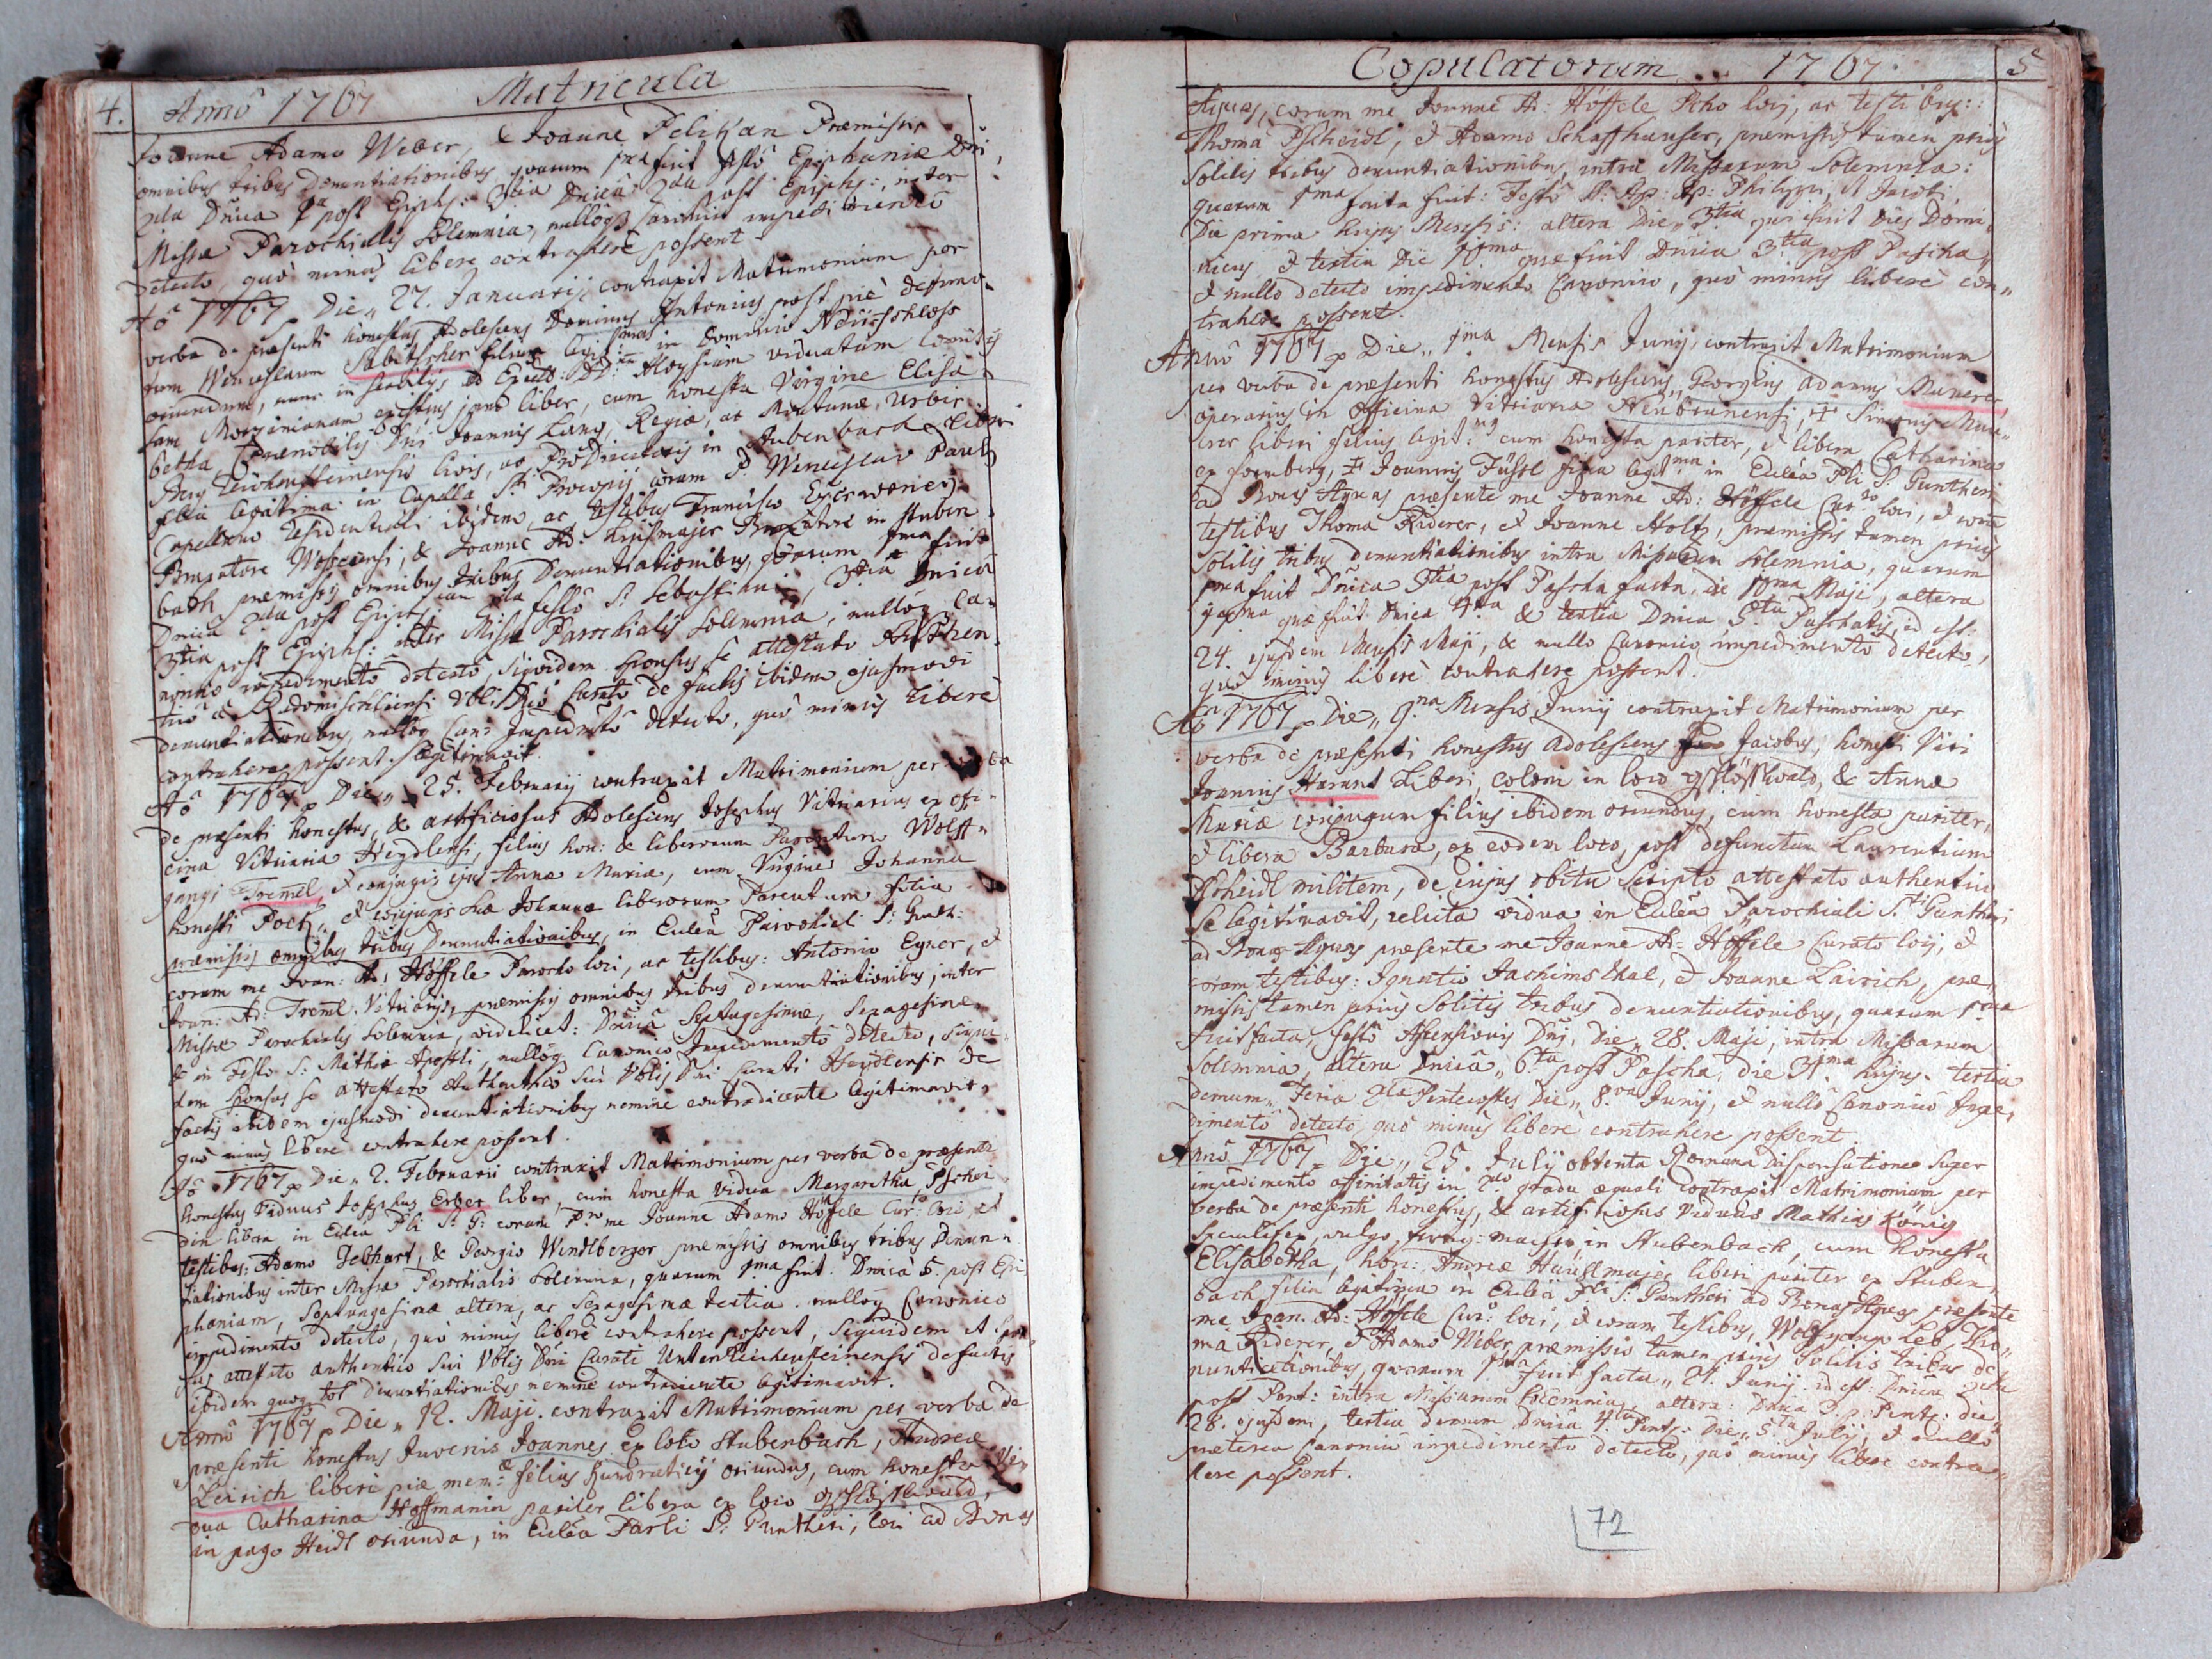 4. Anno 1767 Matricula
Joanne Adamo Weber, & Joanne Pelikan Præmissis
omnibus tribus Denuntiationibus quarum 1ma fuit festo Epiphaniæ Dni,
2da Dnica 1a post Epiph: 3tia Dnica 2da post Epiph:, inter
Missæ Parochialis Solemnia, nulloq impedimento
detecto, quò minus libere contrahere possent.
Aô 1767 Die 27. Januarij contraxit Matrimonium per
verba de præsenti honestus Adolescens Dominus Antonius post piè defunc-
tum Wenceslaum filius in Dominio
oriundus, nunc in
liber, cum honesta Virgine Elisa-
betha Dni Joannis Lang, Regiæ, ac Montanæ, Urbis
Civis, ac in Stubenbach
filia legitima: in Capella Sti Procopij coram P. Wenceslao
Capellano residentiali ibidem, ac testibus Francisco
& Joanne Ad: in Stuben
bach præmissis omnibus tribus Denuntiationibus, quarum 1ma fuit
Dnica 2da post Epiph: 2da festo S: Sebastiani, 3tia Dnica
3tia post Epiph: inter Missæ Parochialis Solemnia, nulloq Ca-
nonico impedimentô detectô, siquidem Sponsus se attestato Authen-
Curato de factis ibidem ejusmodi
denuntiationibus, nulloq Can: Impedimtô detecto, quò minus libere
contrahere possent legitimavit.
Aô 1767 Die 25. Februarij contraxit Matrimonium per verba
de præsenti honestus, & artificiosus Adolescens Josephus Vitriarius ex offi-
cina Vitriaria Heydlensi, filius hon: & liberorum Parentum Wolff-
gangi Tremel, et conjugis ejus Annæ Mariæ, cum Virgine Johanna
honesti Pock, et conjugis suæ Johannæ liberorum Parentum filia
præmissis omnibus tribus Denuntiationibus, in Eccleâ Parochiali S: Gunth:
coram me Joan: Ad: Höffele Parocho loci, ac testibus: Antonio Eyner, et
Joan: Ad: Treml Vitriarijs, præmissis omnibus tribus denuntiationibus, inter
Missæ Parochialis Solemnia, videlicet: Dnicâ Septuagesimæ, Sexagesimæ
& in Festo S: Mathiæ Apostoli, nulloq Canonico Impedimentô detecto, siqui-
dem Sponsus se attestato Authentico sui Vblis Dni Curati Heydlensis de
factis ibidem ejusmodi denuntiationibus nemine contradicente legitimavit,
quò minus libere contrahere possent.
Aô 1767 Die 2. Februarii contraxit Matrimonium per verba de præsenti
honestus Viduus Josephus Erber liber, cum honesta Vidua Margaretha Pschei-
din libera in Eclea Pli S: G: coram me Joanne Adamo Höffele Cur: loci et
testibus: Adamo Gebhart, & Georgio Wendlberger præmissis omnibus tribus Denun-
tiationibus inter Missæ Parochialis Solemnia, quarum 1ma fuit Dnicâ 5. post Epi-
phaniam, Septuagesimæ altera, ac Sexagesimæ tertia. nulloq Canonico
impedimento detecto, quò minus liberè contrahere possent, Siquidem et Spon-
sus attestato authentico sui Vblis Dni Curati Unterreichensteinensis de factis
ibidem quoq tot denuntiationibus nemine contradicente legitimavit.
Annô 1767 Die 12. Maji contraxit Matrimonium per verba de
præsenti honestus Juvenis Joannes ex loco Stubenbach, Andreæ
Leirich liberi piæ mem: filius oriundus, cum honesta Vi-
dua Catharina Hoffmanin pariter libera ex loco gschlößlwald,
in pago Heidl oriunda, in Eccleâ Parli S: Guntheri, loci ad Bonas
Copulatorum 1767. 5
Aquas, coram me Joanne Ad: Höffele Pcho loci, ac testibus::
Thoma Pscheidl, et Adamo Schaffhauser, præmissis tamen priùs
Solitis tribus denuntiationibus, intra Missarum Solemnia:
quarum 1ma facta fuit: Festô Philippi, et Jacobi,
Die prima hujus Mensis: altera Die 3tia quæ fuit Dies Domi-
nicus, et tertia Die 10ma quæ fuit Dnica 3tia post Pascha,
et nullo detecto impedimento Canonico, quò minus liberè con-
trahere possent.
Annô 1767 Die 1ma Mensis Junij, contraxit Matrimonium
per verba de præsenti honestus Adolescens Georgius Adamus Maurer
operarius in Officina Vitriaria Neubrunensi, Simonis Mau-
rer liberi filius legit: cum honesta pariter, et libera Catharina
ex Joannis Füssl filia legitma in Eccleâ Pli S. Guntheri
ad Bonas Aquas præsente me Joanne Ad: Höffele Curo loci, et coram
testibus Thoma Riderer, et Joanne Holtz, præmissis tamen priùs
solitis tribus denuntiationibus intra Missarum Solemnia, quarum
1ma fuit Dnica 3tia post Pascha facta, die 10ma Maji, altera
17ma quæ fuit Dnica 4ta & tertia Dnica 5ta Paschatis, id est:
24. ejusdem Mensis Maji, & nullo Canonico impedimentô detecto,
quò minus liberè contrahere possent.
Aô 1767 Die 9na Mensis Junij contraxit Matrimonium per
verba de præsenti honestus Adolescens Jacobus, honesti Viri
Joannis Harant Liberi, coloni in loco gschlößlwald, & Annæ
Mariæ conjugum filius ibidem oriundus, cum honesta pariter,
et libera Barbara, ex eodem loco, post defunctum Laurentium
Pscheidl militem, de cujus obitu scripto attestato authentico
se legitimavit, relicta vidua in Eccleâ Parochiali S.ti Guntheri
ad Bonas Aquas præsente me Joanne Ad: Höffele Curato loci, et
coram testibus: Ignatio Jachimsthal, et Joanne Lairich, præ-
missis tamen priùs Solitis tribus denuntiationibus, quarum 1ma
fuit facta, festô Ascensionis Dni, Die 28. Maji, intra Missarum
Solemnia, altera Dnicâ 6ta post Pascha, die 31ma hujus. tertia
demum Feria 2da Pentecostes Die 8va Junij, et nullô Canonico Impe-
dimento detecto, quò minus liberè contrahere possent
Annô 1767 Die 25. Julij obtenta Romana Dispensatione super
impedimento affinitatis in 2do gradu æquali contraxit Matrimonium per
verba de præsenti honestus, & artificiosus Viduus Mathias König
in Stubenbach, cum honesta
Elisabetha, hon: Andreæ liberi pariter ex Stuben-
bach filia legitima in Eccleâ Pli S: Guntheri ad Bonas Aquas præsente
me Joan. Ad: Höffele Cur: loci, et coram testibus, Wolfgango Leb, Tho-
ma Riderer, et Adamo Weber, præmissis tamen priùs Solitis tribus de-
nuntiationibus, quarum 1ma fuit facta 21. Junij id est: Dnica 2da
post Pent: intra Missarum Solemnia, altera: Dnica 3. p: Pent: die
28. ejusdem, tertia demum Dnica 4ta Pent: Die 5ta Julij, et nullo
præterea Canonico impedimento detecto, quò minus libere contra-
here possent.
72